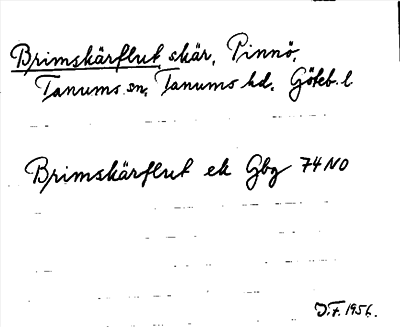 Brimskärflut skär, Pinnö,
Tanums sn, Tanums hd. Göteb. l
Brimskärflut ek Gbg 74 NO
J.F. 1956.